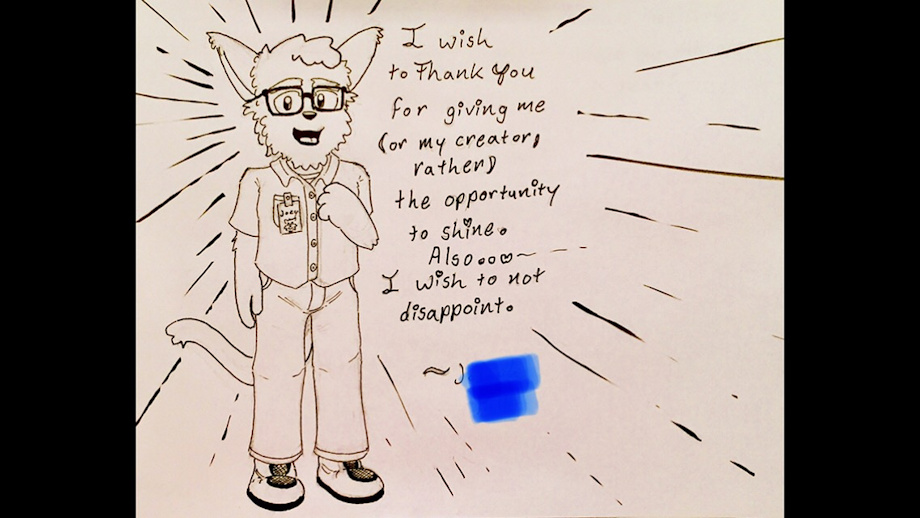 I wish
to Thank You
for giving me
(or my creator,
rather)
the opportunity
to shine.
Also...
I wish to not
disappoint.
~ J
Joey